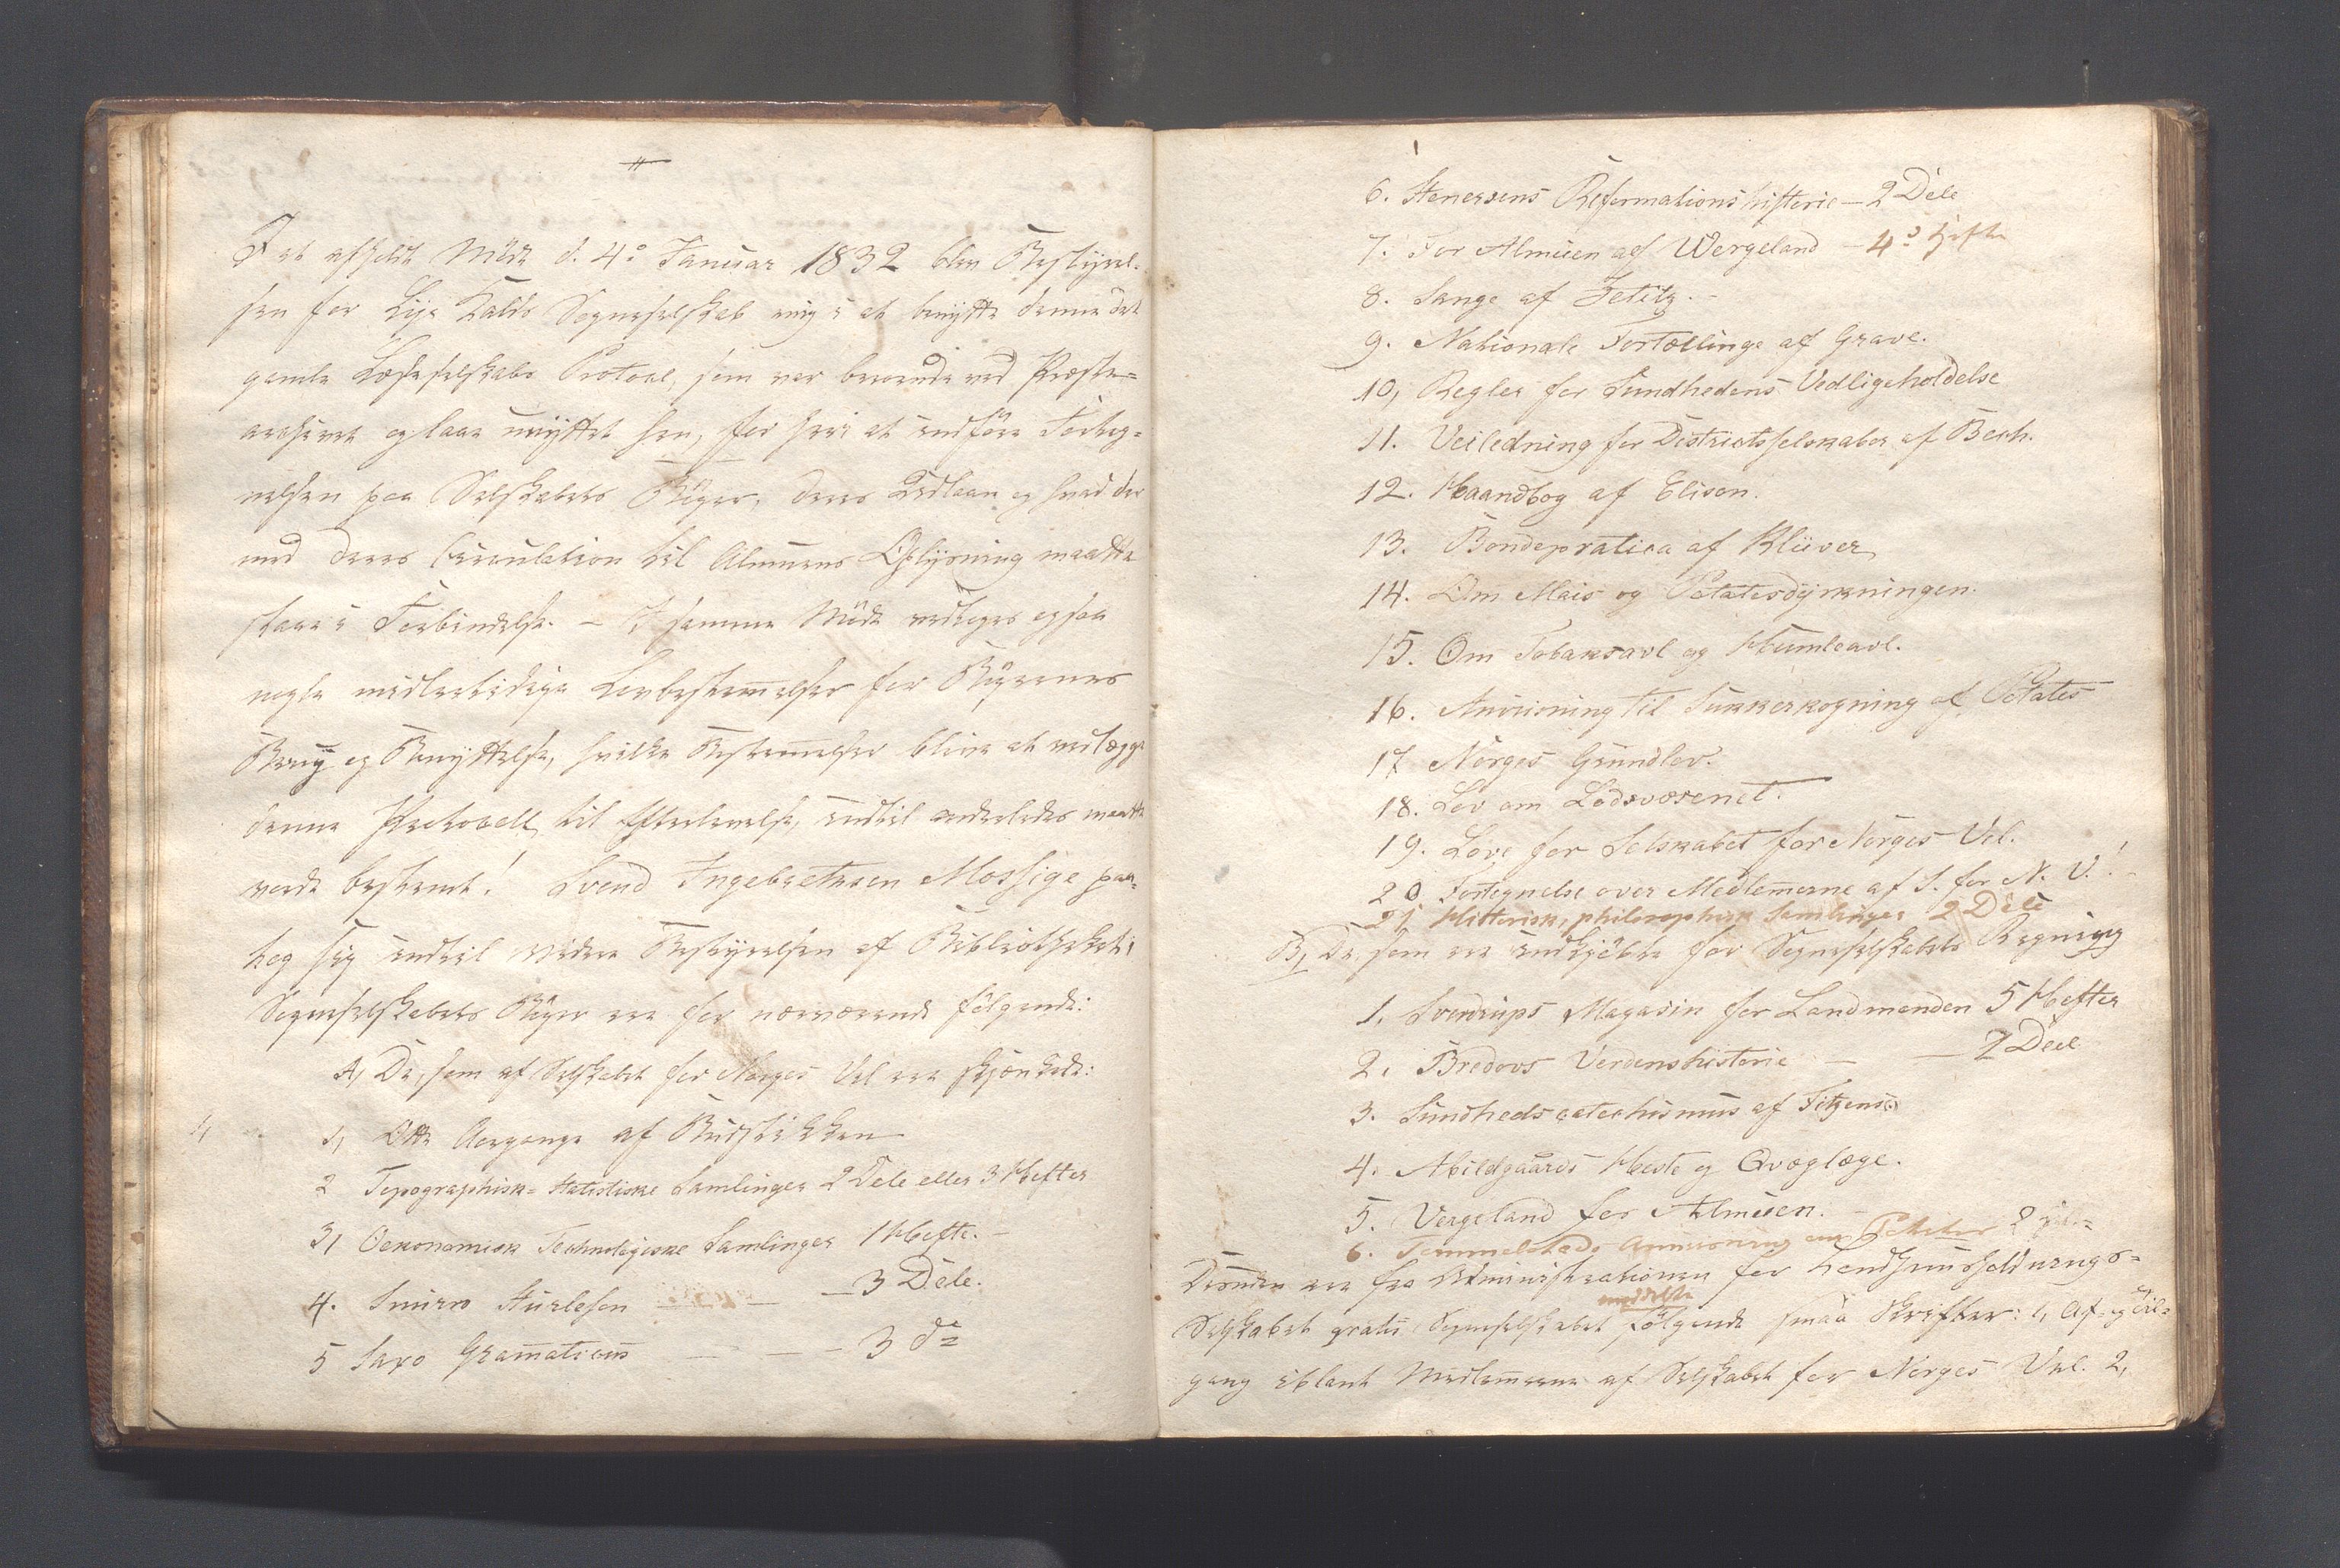 I et afholdt Møde d. 4de Januar 1832 blev Bestyrel-
sen for Lye Kalds Sogneselskab enig i at benytte denne det
gamle Læseselskabs Protocol, som var beroende ved Præste-
archivet og laae unyttet hen, for heri at indføre Forteg-
nelsen paa Selskabets Bøger, deres Udlaan og hvad der
med deres Circulation til Almuens Oplysning maatte
staae i Forbindelse. - I samme Møde vedtoges ogsaa
nogle midlertidige Lovbestemmelser for Bøgernes
Brug og Benyttelse, hvilke Bestemmelser blive at vedlægge
denne Protocoll til Efterlevelse, indtil anderledes maatte
vorde bestemt! Svend Ingebretsen Mossige paa-
tog sig indtil videre Bestyrelsen af Bibliotheket.
Sogneselskabets Bøger ere for nærværende følgende:
A, De, som af Selskabet for Norges Vel ere skjænkede:
1, Otte Aargange af Budstikken
2 Topographisk-Statistiske Samlinger 2 Dele eller 3 Hefter
3, Oekonomisk Technologiske Samlinger 1 Hefte. -
4. Snurro Sturleson — 3 Dele.
5 Saxo Gramaticus — — - 3 do
6. Stenersens Reformationshistorie - 2 Dele
7. For Almuen af Wergeland - 4 Hefte
8. Sange af Zetlitz. -
9. Nationale Fortællinge af Grave.
10, Regler for Sundhedens Vedligeholdelse
11. Veiledning for Districtsselskaber af Bech.
12. Haandbog af Elison.
13. Bondepratica af Klüver
14. Om Mais og Potatesdyrkningen.
15. Om Tobaksavl og Humleavl.
16. Anviisning til Sukkerkogning af Potates
17 Norges Grundlov.
18. Lov om Lodsvæsenet.
19. Love for Selskabet for Norges Vel.
20. Fortegnelse over Medlemerne af S. for N. V. -
21 Historisk, philosophisk Samlinger 2 Dele
B, De, som ere indkjøbte for Sogneselskabets Regning
1, Sverdrups Magasin for Landmanden 5 Hefter
2, Bredovs Verdenshistorie — — 2 Deel
3. Sundhedscatechismus af
4. Abildgaards Heste og Qvæglæge.
5. Vergeland for Almuen. -
6. Anviisning om Poteter 2
Desuden ere fra Administrationen for Landhuusholdnings-
meddelte
Selskabet gratis Sogneselskabet følgende smaa Skrifter: 1, Af- og Til-
gang iblant Medlemerne af Selskabet for Norges Vel. 2,